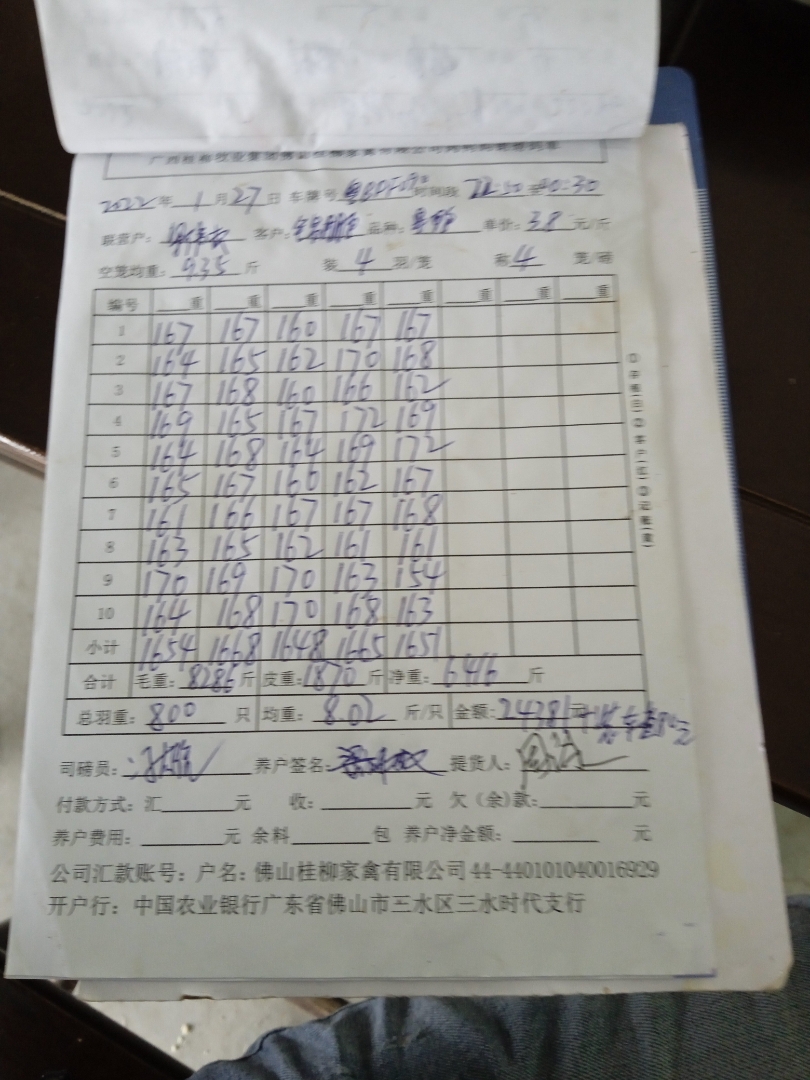 2022年 1月27日 车牌号 时间段
联营户: 客户: 品种: 单价:3.8元/斤
空笼均重:9.35斤 装4羽/笼 称4笼/磅
编号 重 重 重 重 重 重 重 重
1 167 167 160 167 167
2 164 165 162 170 168
3 167 168 160 166 162
4 169 165 167 172 169
5 164 168 164 169 172
6 165 167 160 162 167
7 161 166 167 167 168
8 163 165 162 161 161
9 170 169 170 163 154
10 164 168 170 168 163
小计 1654 1668 1648 1665 1651
合计 毛重:8286斤 皮重:1870斤 净重:6416斤
总羽重:800只 均重:8.02斤/只 金额:24381元
司磅员: 养户签名: 提货人:
付款方式:汇 元 收: 元 欠(余)款: 元
养户费用: 元 余料 包 养户净金额: 元
公司汇款账号:户名:佛山桂柳家禽有限公司 44-440101040016929
开户行:中国农业银行广东省佛山市三水区三水时代支行